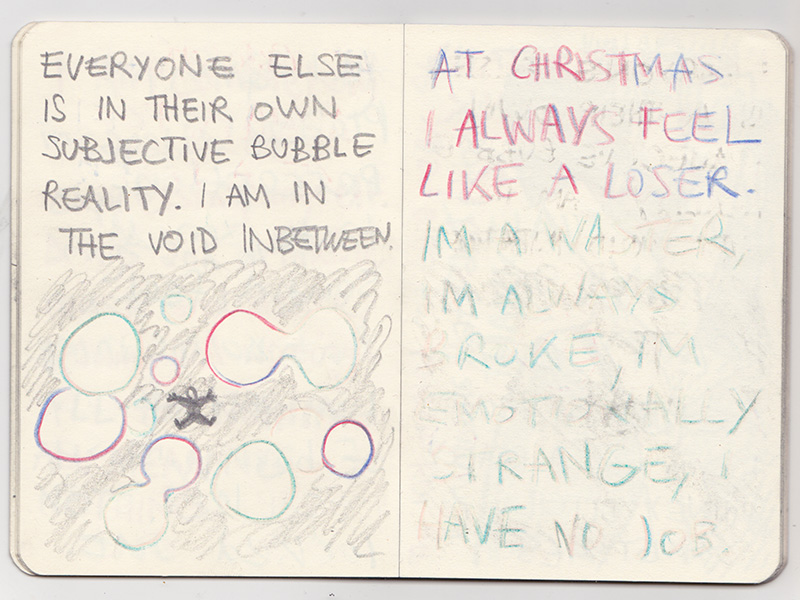 EVERYONE ELSE
IS IN THEIR OWN
SUBJECTIVE BUBBLE
REALITY. I AM IN
THE VOID INBETWEEN.
AT CHRISTMAS
I ALWAYS FEEL
LIKE A LOSER.
IM A WAITER,
IM ALWAYS
BROKE, I'M
EMOTIONALLY
STRANGE, I
HAVE NO JOB.